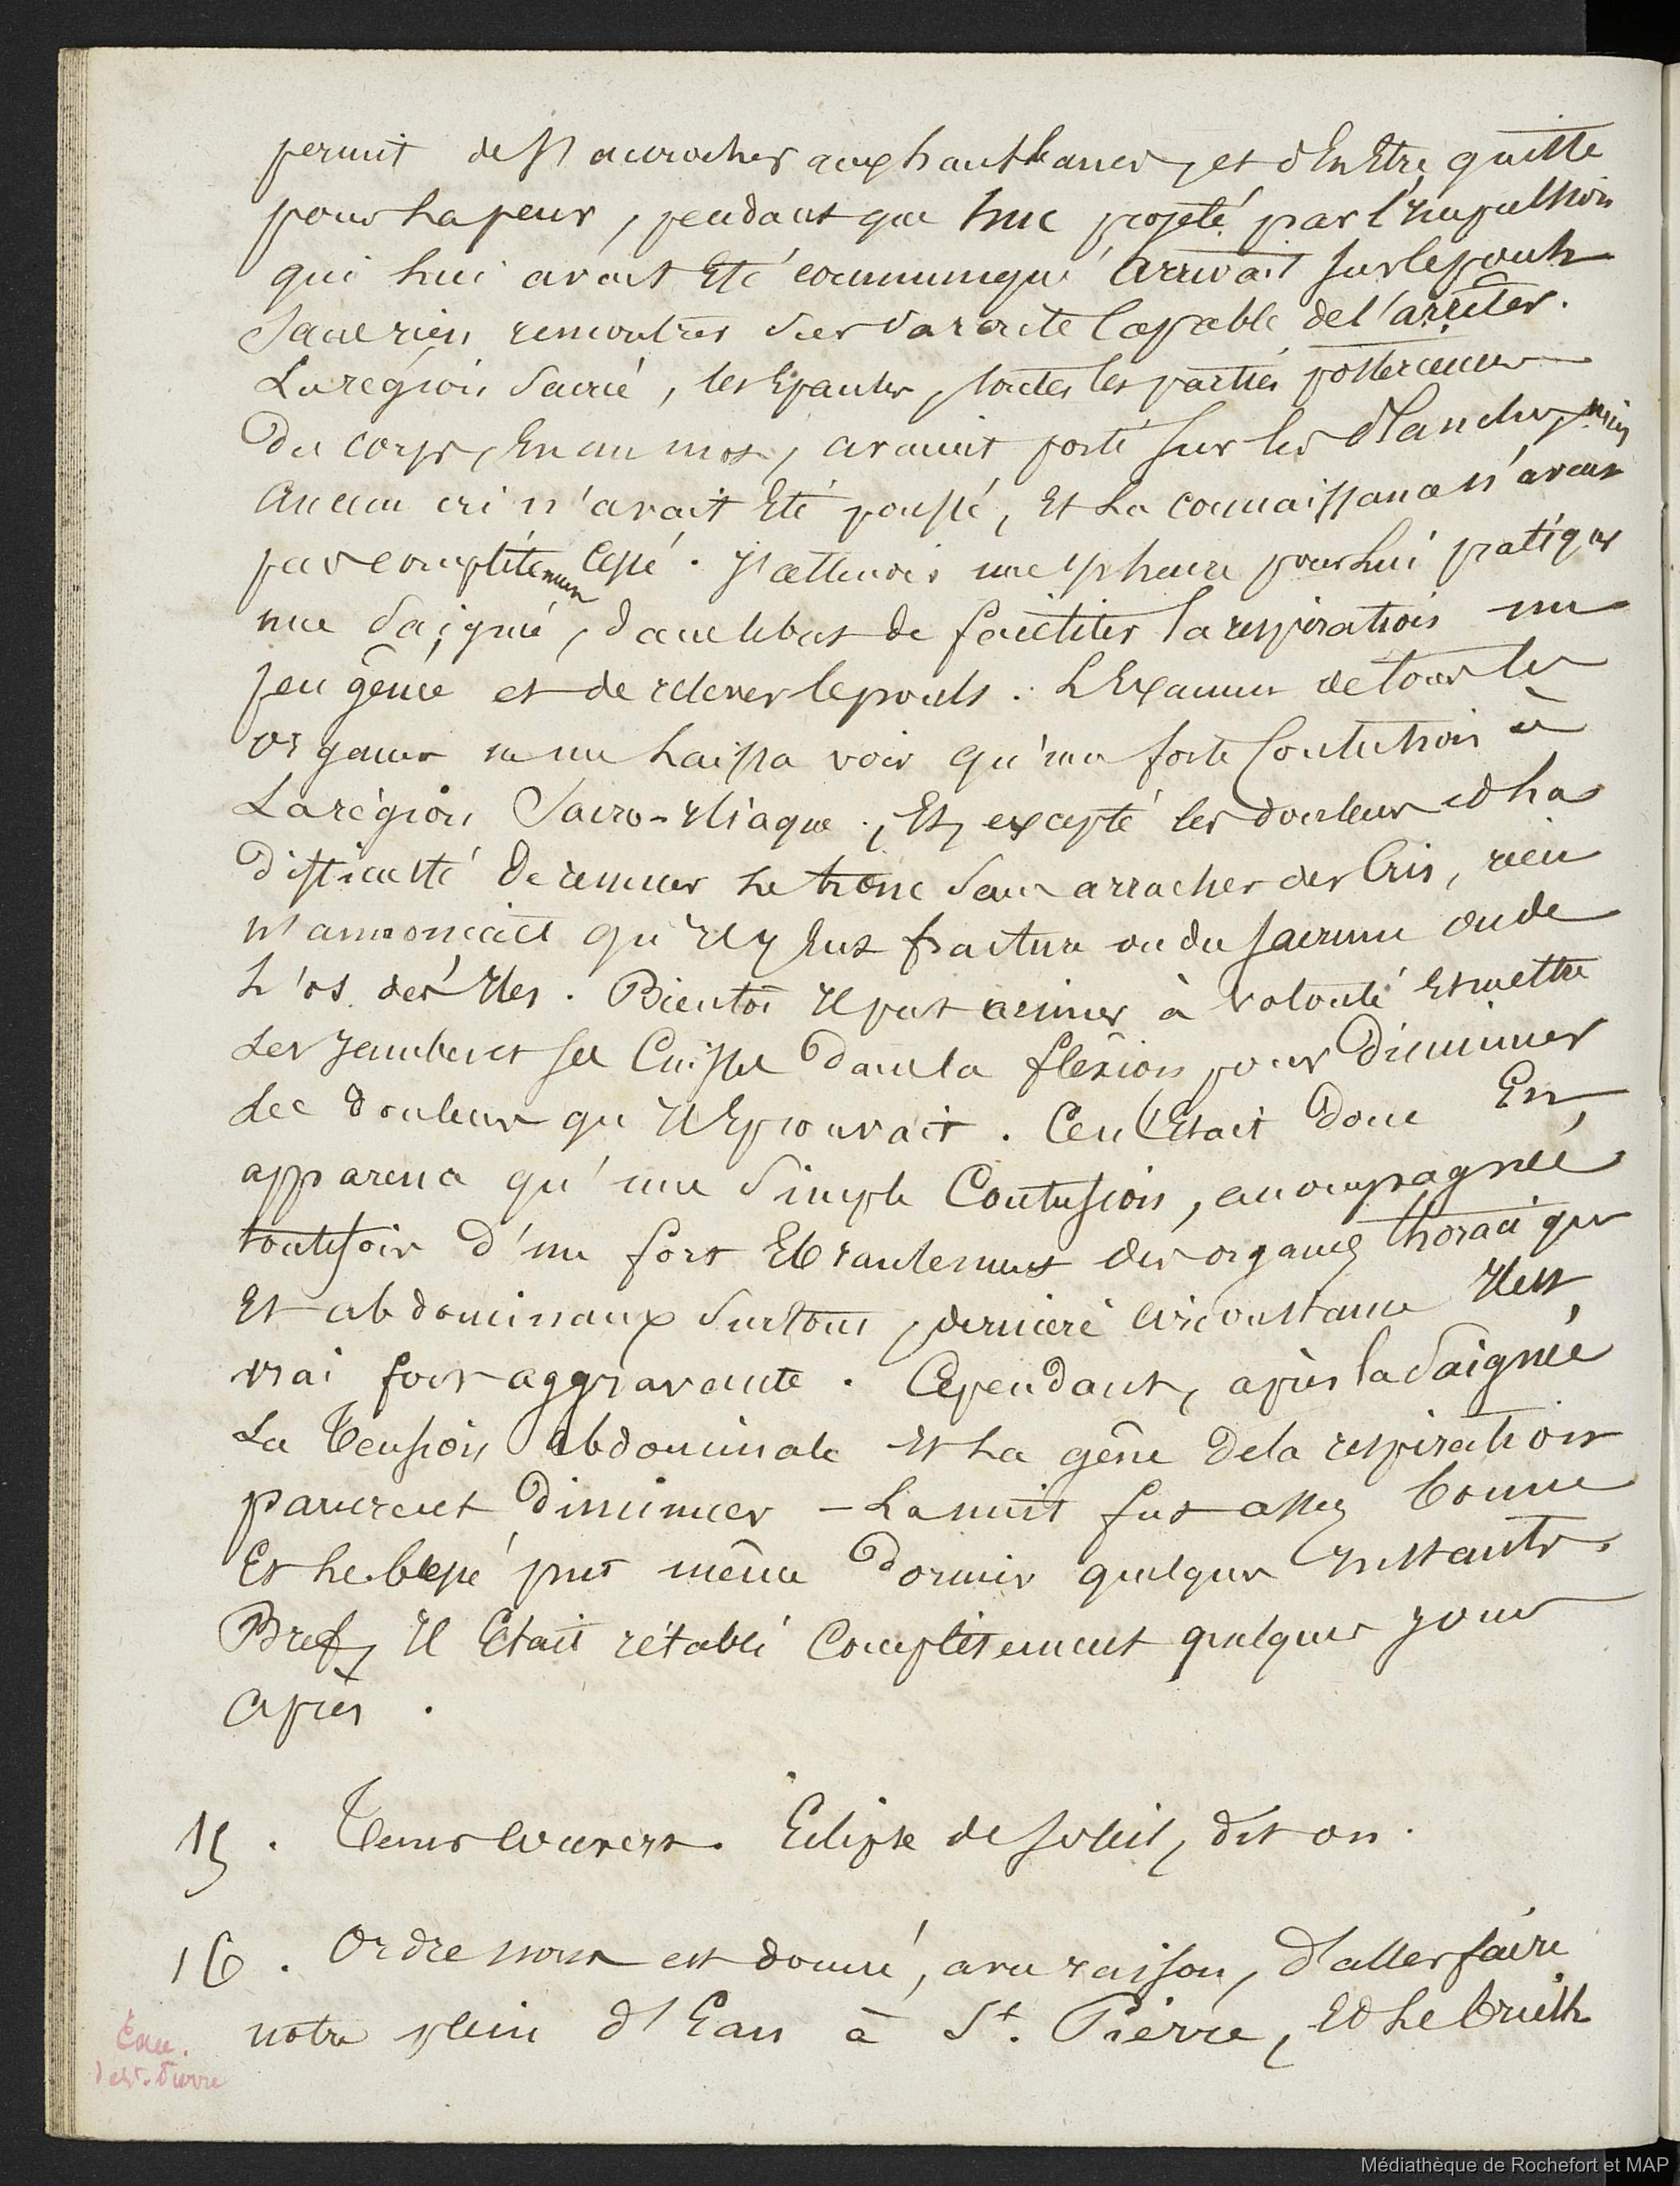 permit de s'accrocher aux hautbancs, et d'En Etre quitte
pour La peur, pendant que projeté par l'Impulsion
qui Lui avait Eté communiquée Arrivait sur le pont
sans rien rencontrer dans sa route Capable de l'arrêter.
La région Sacrée, les Epaules, toutes les parties posterieures
Du corps, En un mot, avaient porté sur les Planches, mais
Aucun cri n'avait Eté poussé, Et La connaissance n'avait
pas complétement Cessé. J'attendis une 1/2 heure pour Lui pratiquer
une Saignée, dans le but de faciliter la respiration un
peu gênée et de relever le pouls. L'Examen de tous les
organes ne me Laissa voir qu'une forte Contusion à
La région Sacro-Iliaque; Et, excepté les douleurs et La
Difficulté De remuer Le tronc Sans arracher des Cris, rien
n'annonçait qu'Il y Eut fracture ou du sacrum ou de
L'os des Iles. Bientôt Il put à volonté Et mettre
Les Jambes et ses Cuisses Dans la fléxion pour Diminuer
Les douleurs qu'Il Eprouvait. Ce n'Etait Donc En
apparence qu'une Simple Contusion, accompagnée
toutefois d'un fort Ebranlement des organes thoraciques
Et abdominaux Surtout, dernière circonstance Il est
vrai fort aggravante. Cependant, après la Saignée
La Tension Abdominale Et La gêne De la respiration
parurent Diminuer – La nuit fut assez bonne
Et Le blessé put même Dormir quelques Instants.
Bref, Il Etait rétabli Complétement quelques Jours
Après.
15. Tems Couvert. Eclipse de soleil, dit on.
16. Ordre nous est donné, avec raison, D'aller faire
notre plein d'Eau à St. Pierre, Et Le brick
Eau.
de St. Pierre
Médiathèque de Rochefort et MAP